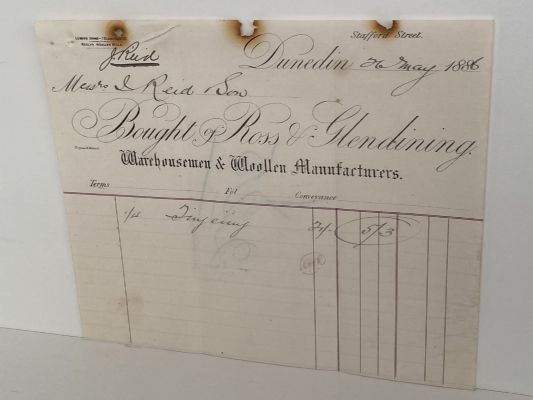 Stafford Street.
J Reid
Dunedin 26 May 1886
Messrs J Reid & Son
Bought of Ross & Glendining.
Warehousemen & Woollen Manufacturers.
Terms Fol Conveyance
1/4 2/- 5/3